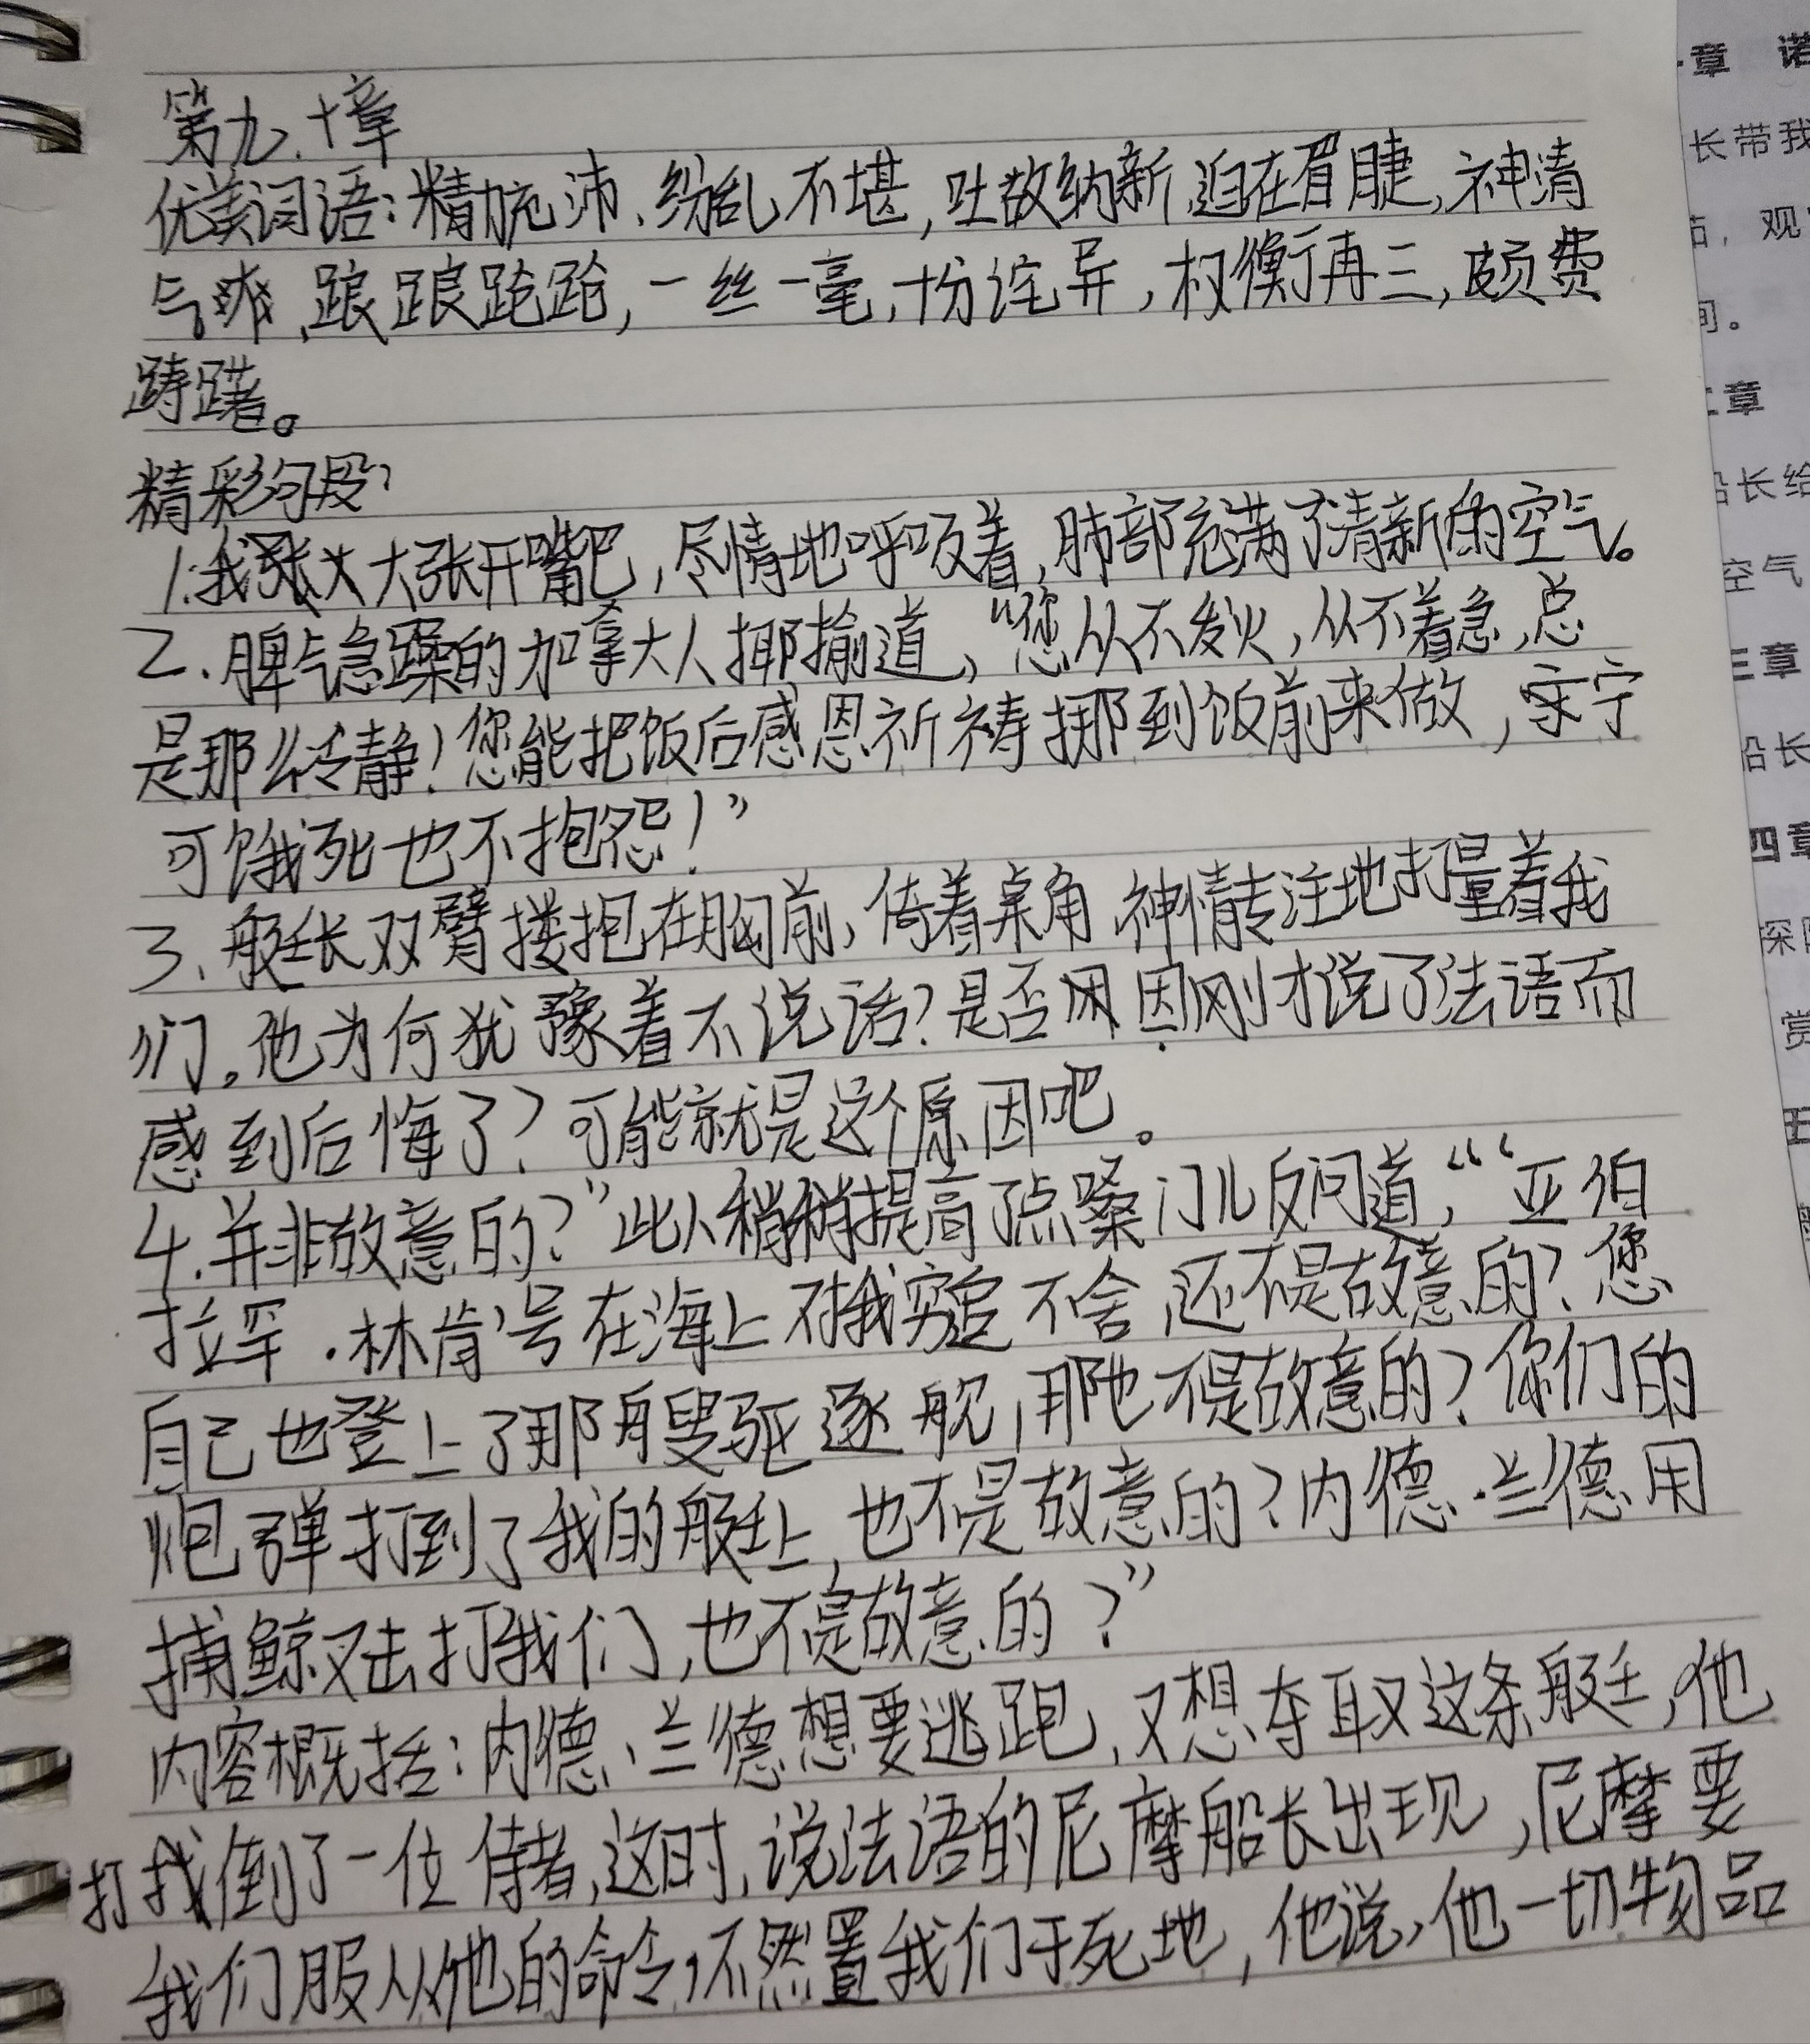 第九、十章
优美词语：精力充沛、纷乱不堪，吐故纳新，迫在眉睫，神清
气爽，踉踉跄跄，一丝一毫，十分诧异，权衡再三，颇费
踌躇。
精彩句段：
1.我大大张开嘴巴，尽情地呼吸着，肺部充满了清新的空气。
2.脾气急躁的加拿大人揶揄道，“您从不发火，从不着急，总
是那么冷静！您能把饭后感恩祈祷挪到饭前来做，宁
可饿死也不抱怨！”
3、艇长双臂搂抱在胸前，倚着桌角，神情专注地打量着我
们。他为何犹豫着不说话？是否因刚才说了法语而
感到后悔了？可能就是这个原因吧。
4.并非故意的？”此人稍稍提高了点嗓门儿反问道，“‘亚伯
拉罕·林肯’号在海上对我穷追不舍，还不是故意的？您
自己也登上了那艘驱逐舰，那也不是故意的？你们的
炮弹打到了我的艇上，也不是故意的？内德·兰德用
捕鲸叉击打我们，也不是故意的？”
内容概括：内德、兰德想要逃跑，又想夺取这条艇，他
打倒了一位侍者，这时，说法语的尼摩船长出现，尼摩要
我们服从他的命令，不然置我们于死地，他说，他一切物品
章 诺
长带我
，观
间。
章
长给
空气
三章
船长
四章
探
赏
五